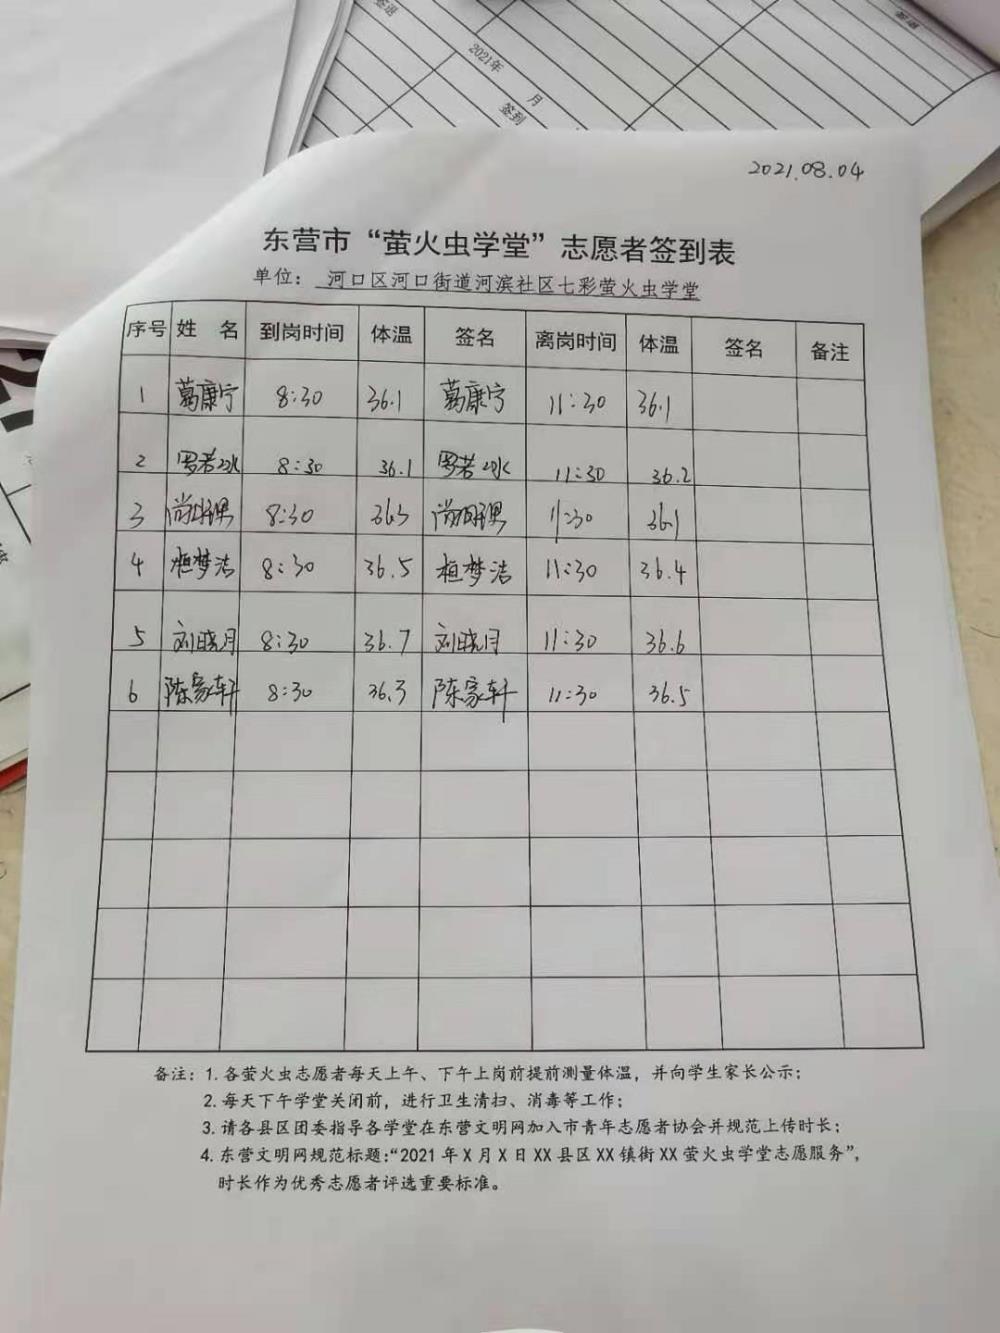 签退
2021年
月
签到
2021.08.04
东营市“萤火虫学堂”志愿者签到表
单位：河口区河口街道河滨社区七彩萤火虫学堂
序号 姓 名 到岗时间 体温 签名 离岗时间 体温 签名 备注
1 葛康宁 8:30 36.1 葛康宁 11:30 36.1
2 罗若冰 8:30 36.1 罗若冰 11:30 36.2
3 8:30 36.3 11:30 36.1
4 桓梦洁 8:30 36.5 桓梦洁 11:30 36.4
5 刘晓月 8:30 36.7 刘晓月 11:30 36.6
6 陈家轩 8:30 36.3 陈家轩 11:30 36.5
备注：1. 各萤火虫志愿者每天上午、下午上岗前提前测量体温，并向学生家长公示；
2. 每天下午学堂关闭前，进行卫生清扫、消毒等工作；
3. 请各县区团委指导各学堂在东营文明网加入市青年志愿者协会并规范上传时长；
4. 东营文明网规范标题：“2021 年 X 月 X 日 XX 县区 XX 镇街 XX 萤火虫学堂志愿服务”，
时长作为优秀志愿者评选重要标准。